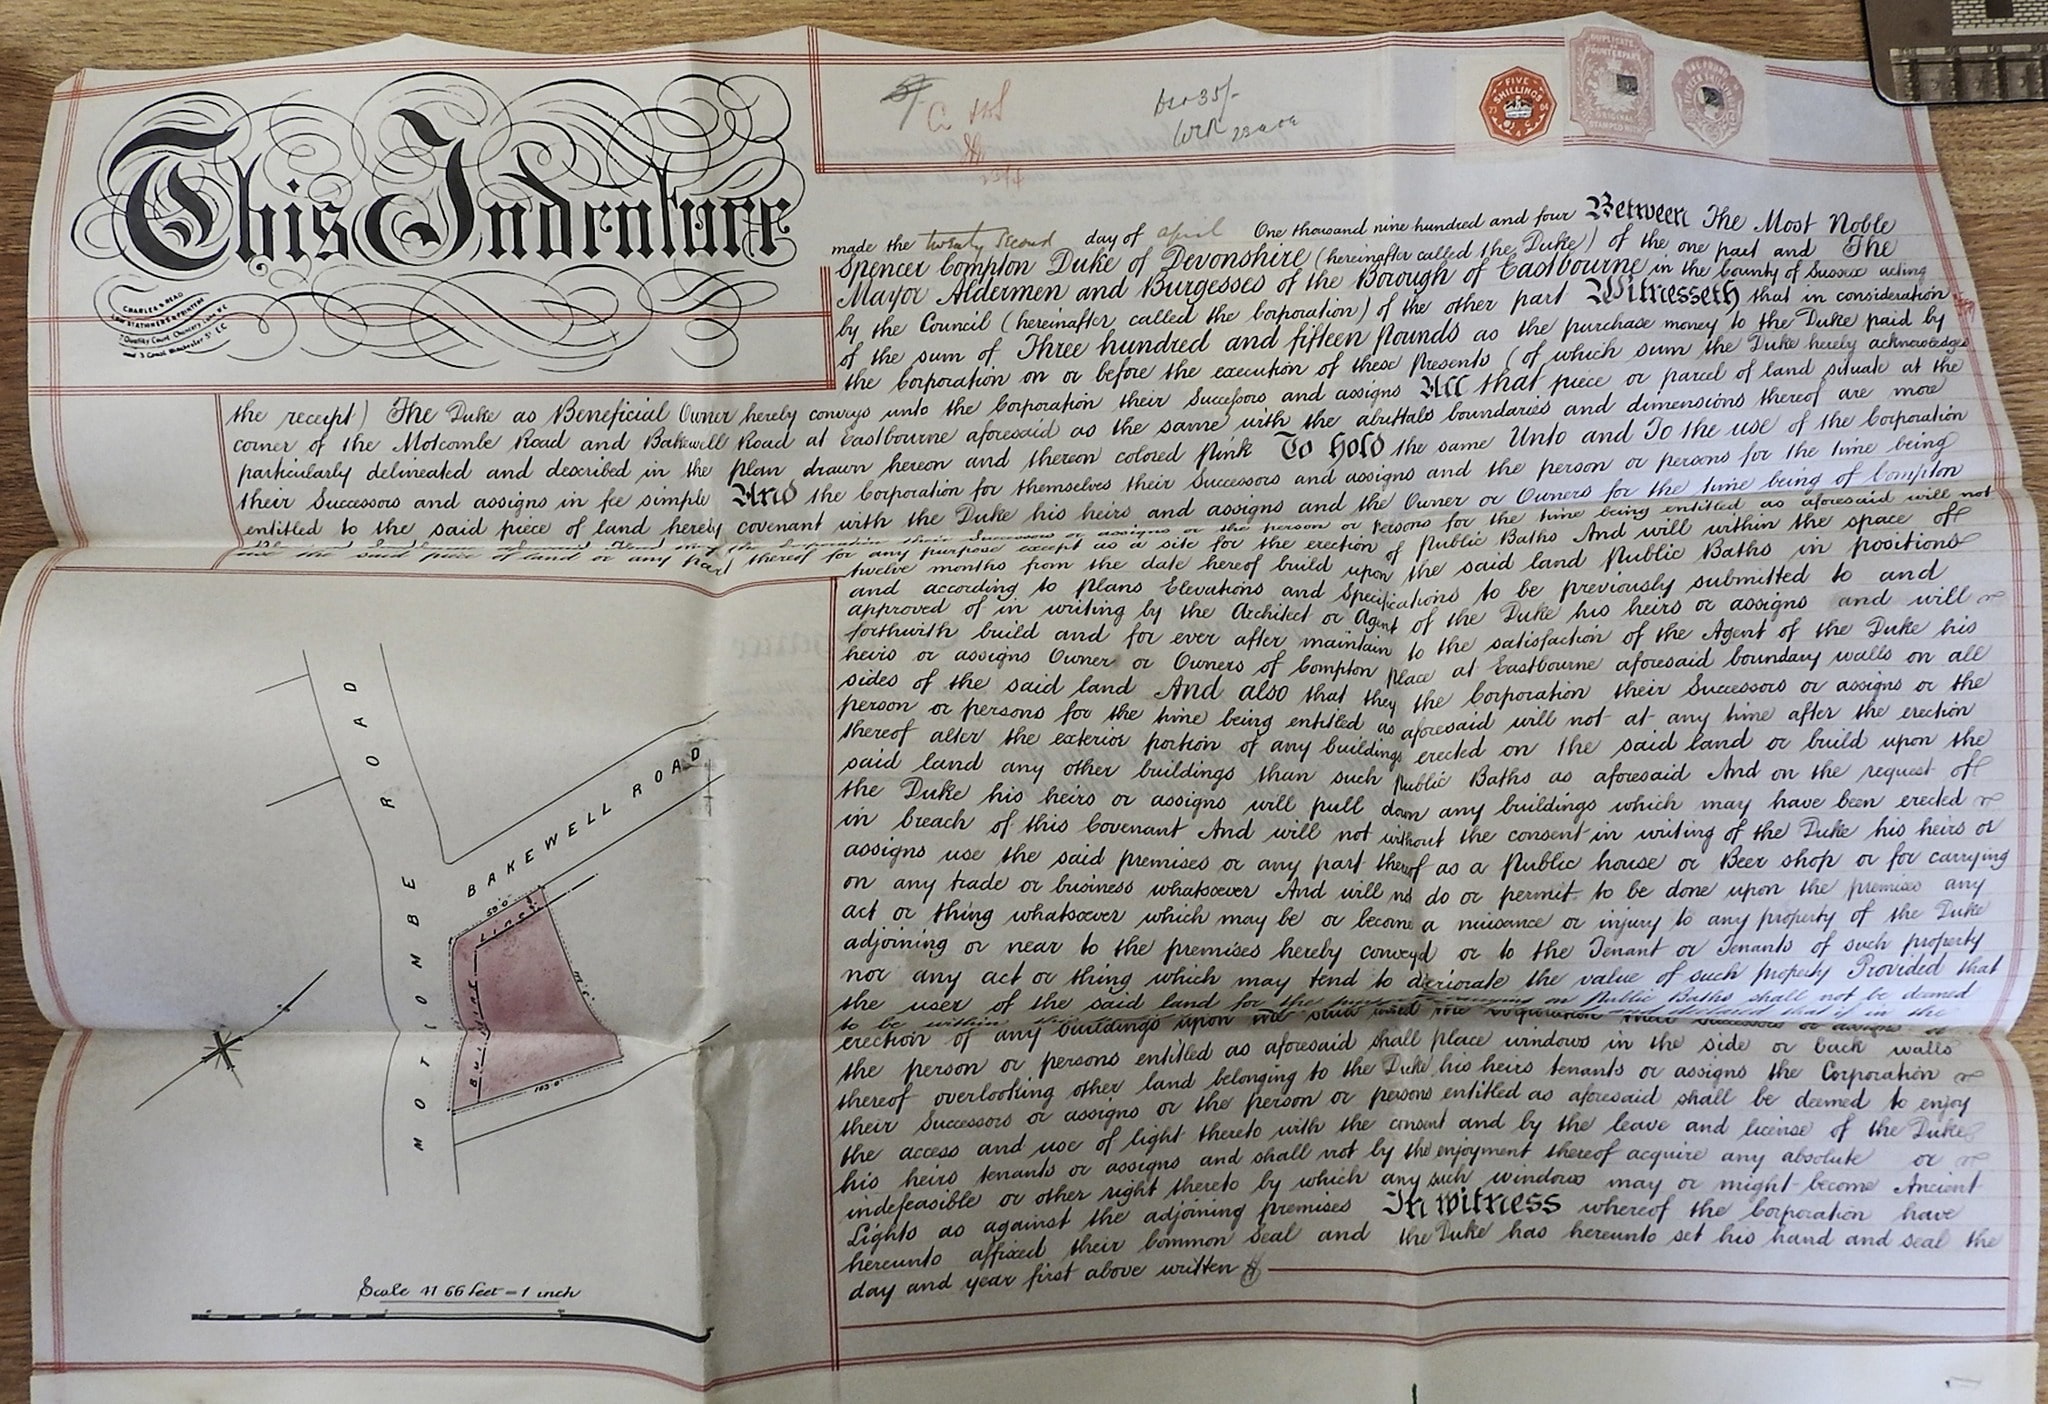 This Indenture
CHARLES & READ
LAW STATIONERS & PRINTERS
7 Quality Court Chancery Lane W.C.
and 3 Great Winchester St. EC
FIVE
SHILLINGS
DUPLICATE
OR
COUNTERPART
ORIGINAL
STAMPED WITH
made the twenty second day of april One thousand nine hundred and four Between The Most Noble
Spencer Compton Duke of Devonshire (hereinafter called the Duke) of the one part and The
Mayor Aldermen and Burgesses of the Borough of Eastbourne in the County of Sussex acting
by the Council (hereinafter called the Corporation) of the other part Witnesseth that in consideration
of the sum of Three hundred and fifteen pounds as the purchase money to the Duke paid by
the Corporation on or before the execution of these Presents (of which sum the Duke hereby acknowledges
the receipt) The Duke as Beneficial Owner hereby conveys unto the Corporation their Successors and assigns All that piece or parcel of land situate at the
corner of the Motcombe Road and Bakewell Road at Eastbourne aforesaid as the same with the abuttals boundaries and dimensions thereof are more
particularly delineated and described in the plan drawn hereon and thereon colored pink To hold the same Unto and To the use of the Corporation
their Successors and assigns in fee simple And the Corporation for themselves their Successors and assigns and the person or persons for the time being
entitled to the said piece of land hereby covenant with the Duke his heirs and assigns and the Owner or Owners for the time being of Compton
the Corporation their Successors or assigns or the person or persons for the time being entitled as aforesaid will not
use the said piece of land or any part thereof for any purpose except as a site for the erection of Public Baths And will within the space of
twelve months from the date hereof build upon the said land Public Baths in positions
and according to plans Elevations and Specifications to be previously submitted to and
approved of in writing by the Architect or Agent of the Duke his heirs or assigns and will
forthwith build and for ever after maintain to the satisfaction of the Agent of the Duke his
heirs or assigns Owner or Owners of Compton Place at Eastbourne aforesaid boundary walls on all
sides of the said land And also that they the Corporation their Successors or assigns or the
person or persons for the time being entitled as aforesaid will not at any time after the erection
thereof alter the exterior portion of any buildings erected on the said land or build upon the
said land any other buildings than such Public Baths as aforesaid And on the request of
the Duke his heirs or assigns will pull down any buildings which may have been erected
in breach of this Covenant And will not without the consent in writing of the Duke his heirs or
assigns use the said premises or any part thereof as a Public house or Beer shop or for carrying
on any trade or business whatsoever And will not do or permit to be done upon the premises any
act or thing whatsoever which may be or become a nuisance or injury to any property of the Duke
adjoining or near to the premises hereby conveyed or to the Tenant or Tenants of such property
nor any act or thing which may tend to deteriorate the value of such property Provided that
the user of the said land for the purpose carrying on Public Baths shall not be deemed
to be within and declared that if in the
erection of any buildings upon the said land the Corporation their Successors or assigns or
the person or persons entitled as aforesaid shall place windows in the side or back walls
thereof overlooking other land belonging to the Duke his heirs tenants or assigns the Corporation
their Successors or assigns or the person or persons entitled as aforesaid shall be deemed to enjoy
the access and use of light thereto with the consent and by the leave and license of the Duke
his heirs tenants or assigns and shall not by the enjoyment thereof acquire any absolute or
indefeasible or other right thereto by which any such windows may or might become Ancient
Lights as against the adjoining premises In witness whereof the Corporation have
hereunto affixed their Common Seal and the Duke has hereunto set his hand and seal the
day and year first above written
MOTCOMBE ROAD
BAKEWELL ROAD
59'.0"
LINE
BUILDING LINE
103'.0"
Scale 41 66 feet = 1 inch